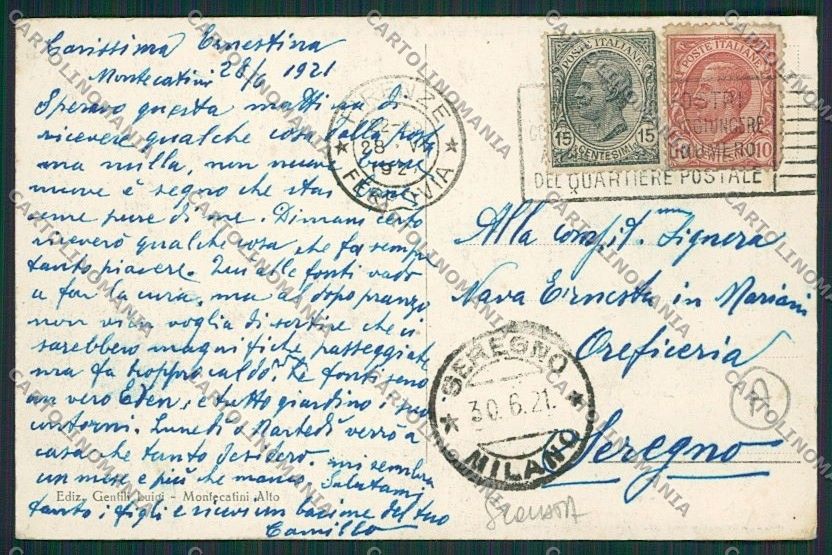 Carissima Ernestina
Montecatini 28/6 1921
Spero questa mattina di
ricevere qualche cosa dalla posta
ma nulla, non nuove buone
nuove è segno che stai
bene pure di me. Dimani certo
riceverò qualche cosa che fa sempre
tanto piacere. Qui alle fonti vado
a far la cura, ma al dopo pranzo
non vien voglia di sortire che ci
sarebbero magnifiche passeggiate
ma fa troppo caldo. Le fonti sono
un vero Eden, è tutto giardino i suoi
contorni. Lunedì o Martedì verrò a
casa che tanto desidero. mi sembra
un mese e più che manco Salutami
tanto i figli e ricevi un bacione dal tuo
Camillo
Ediz. Gentili Luigi - Montecatini Alto
FIRENZE
28
192
FERROVIA
POSTE ITALIANE
15 15
CENTESIMI
POSTE ITALIANE
10
DEL QUARTIERE POSTALE
Alla Signora
Nava Ernesta in Mariani
Oreficeria
Seregno
SEREGNO
30.6.21.
MILANO
A
CARTOLINOMANIA